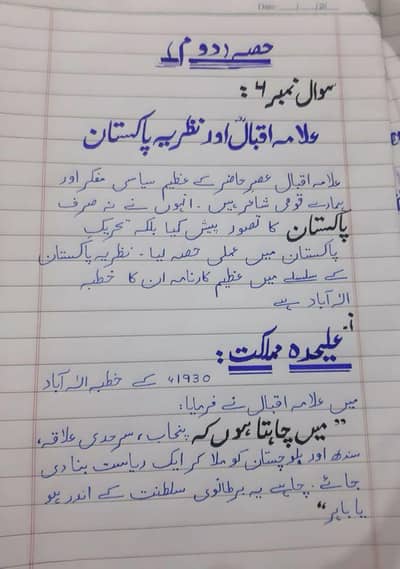 Date: __/__/20__
حصہ (دوم)
سوال نمبر ۶:
علامہ اقبالؒ اور نظریہ پاکستان
علامہ اقبال عصر حاضر کے عظیم سیاسی مفکر اور
ہمارے قومی شاعر ہیں۔ انہوں نے نہ صرف
پاکستان کا تصور پیش کیا بلکہ تحریک
پاکستان میں عملی حصہ لیا۔ نظریہ پاکستان
کے سلسلے میں عظیم کارنامہ ان کا خطبہ
الہ آباد ہے
i. علیحدہ مملکت:
1930ء کے خطبہ الہ آباد
میں علامہ اقبال نے فرمایا:
"میں چاہتا ہوں کہ پنجاب، سرحدی علاقہ،
سندھ اور بلوچستان کو ملا کر ایک ریاست بنا دی
جائے۔ چاہے یہ برطانوی سلطنت کے اندر ہو
یا باہر"